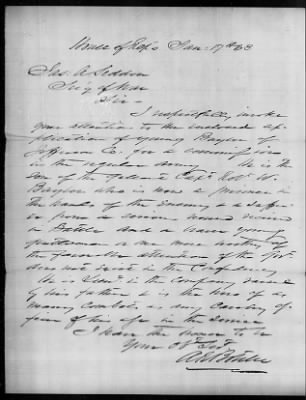 House of Rep's Jan. 17th 63
Jas. A. Seddon
Sec'y of War
Sir
I respectfully invoke
your attention to the enclosed ap-
plication of young Baylor of
Jefferson Co. for a commission
in the regular army. He is the
son of the gallant Capt. Robt. W.
Baylor who is now a prisoner in
the hands of the enemy & a suffer-
er from a severe wound received
in battle and a more young
gentleman or one more worthy of
the favorable attention of the Gov't.
does not exist in the Confederacy
He is Lieut in the company raised
by his father & is the hero of as
many combats as any cavalry of-
ficer of his age in the service
I have the honor to be
Your Obt Svt
A R Boteler